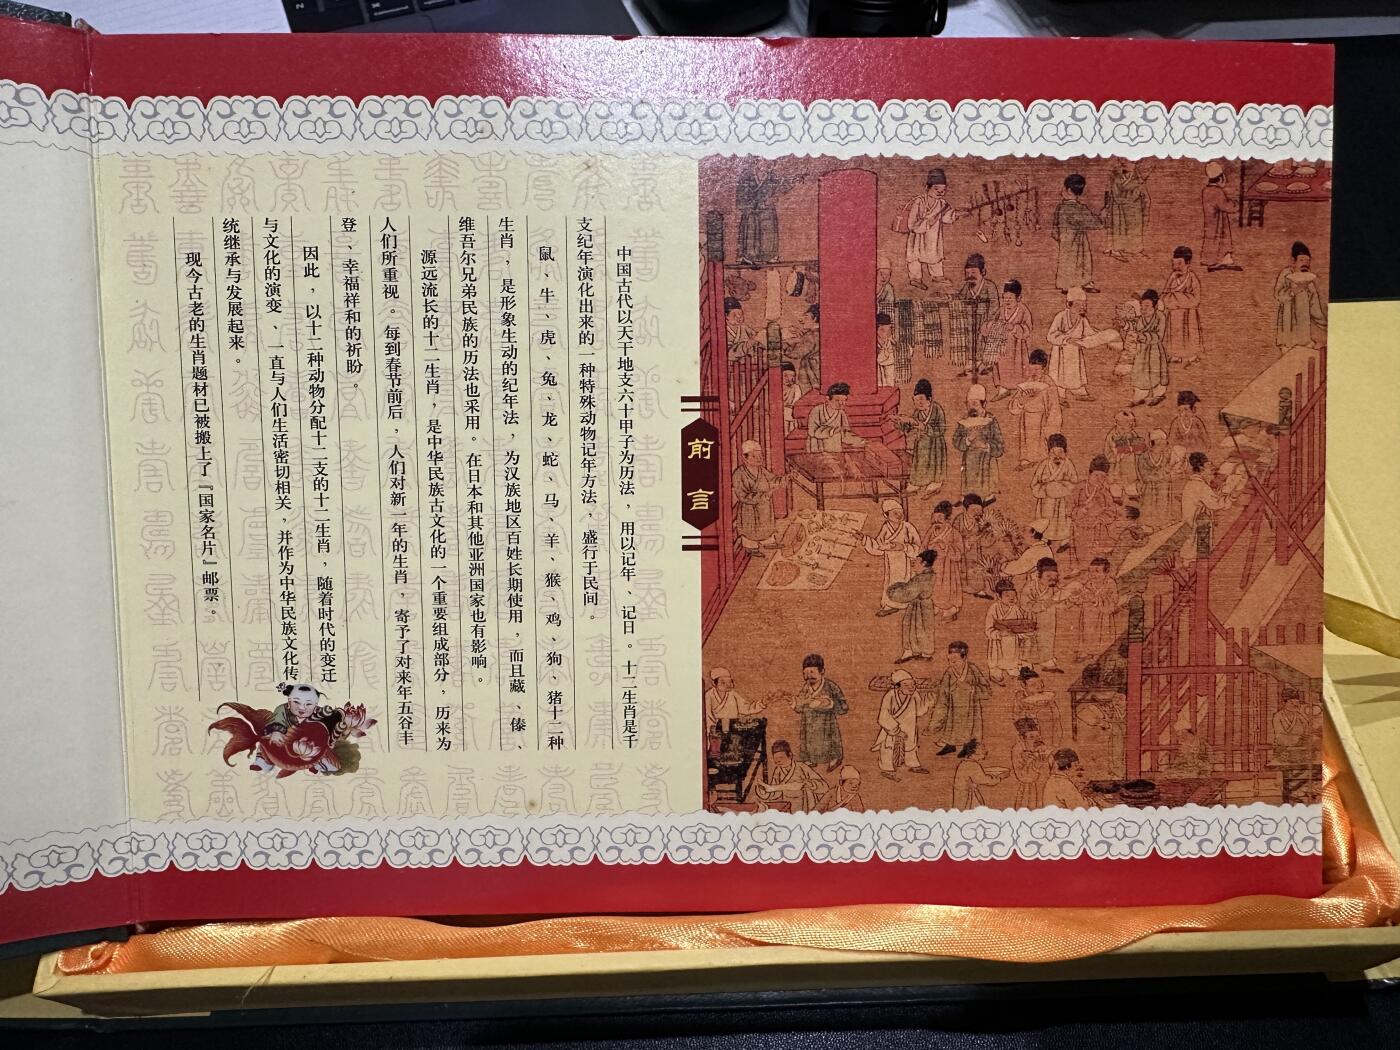 前言
中国古代以天干地支六十甲子为历法，用以记年、记日。十二生肖是干
支纪年演化出来的一种特殊动物记年方法，盛行于民间。
鼠、牛、虎、兔、龙、蛇、马、羊、猴、鸡、狗、猪十二种
生肖，是形象生动的纪年法，为汉族地区百姓长期使用，而且藏、傣、
维吾尔兄弟民族的历法也采用。在日本和其他亚洲国家也有影响。
源远流长的十二生肖，是中华民族古文化的一个重要组成部分，历来为
人们所重视。每到春节前后，人们对新一年的生肖，寄予了对来年五谷丰
登、幸福祥和的祈盼。
因此，以十二种动物分配十二支的十二生肖，随着时代的变迁
与文化的演变、一直与人们生活密切相关，并作为中华民族文化传
统继承与发展起来。
现今古老的生肖题材已被搬上了『国家名片』邮票。